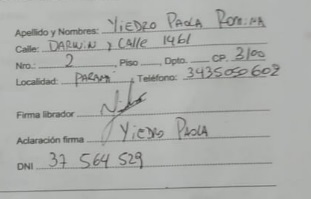 Apellido y Nombres: Yiedro Paola Romina
Calle: Darwin y calle 1461
Nro.: 2 Piso Dpto. CP. 3100
Localidad: Paraná Teléfono: 3435050602
Firma librador
Aclaración firma Yiedro Paola
DNI 37 564 529